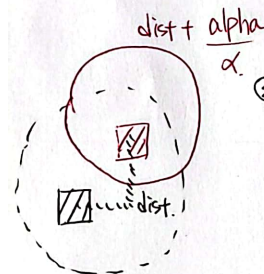 dist + alpha
α.
dist.